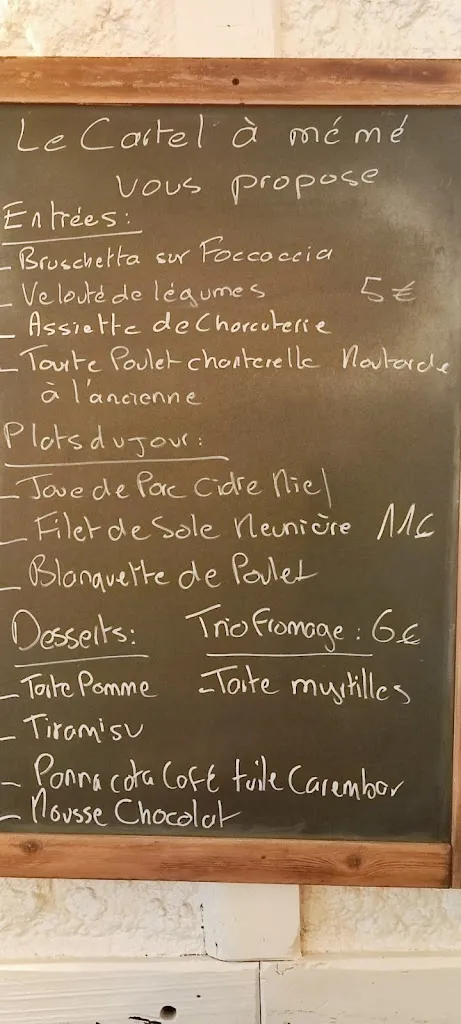 Le Cartel à mémé
vous propose
Entrées:
- Bruschetta sur Foccaccia
- Velouté de légumes 5€
- Assiette de Charcuterie
- Tourte Poulet chanterelle Moutarde
à l'ancienne
Plats du jour:
- Joue de Porc Cidre Miel
- Filet de Sole Meunière 11€
- Blanquette de Poulet
Desserts: Trio Fromage: 6€
- Tarte Pomme - Tarte myrtilles
- Tiramisu
- Panna cota Café tuile Carembar
- Mousse Chocolat